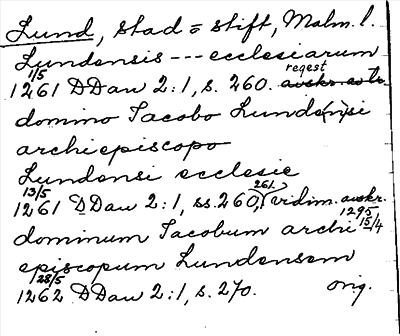 Lund, stad o stift, Malm. l.
Lundensis --- ecclesiarum
1/5 1261 DDan 2:1, s. 260. regest
domino Jacobo Lunde(n)si
archiepiscopo
Lundensi ecclesie
13/5 1261 DDan 2:1, ss. 260, 261 (vidim. avskr. 1295 15/4
dominum Jacobum archi
episcopum Lundensem
28/5 1262 DDan 2:1, s. 270. orig.